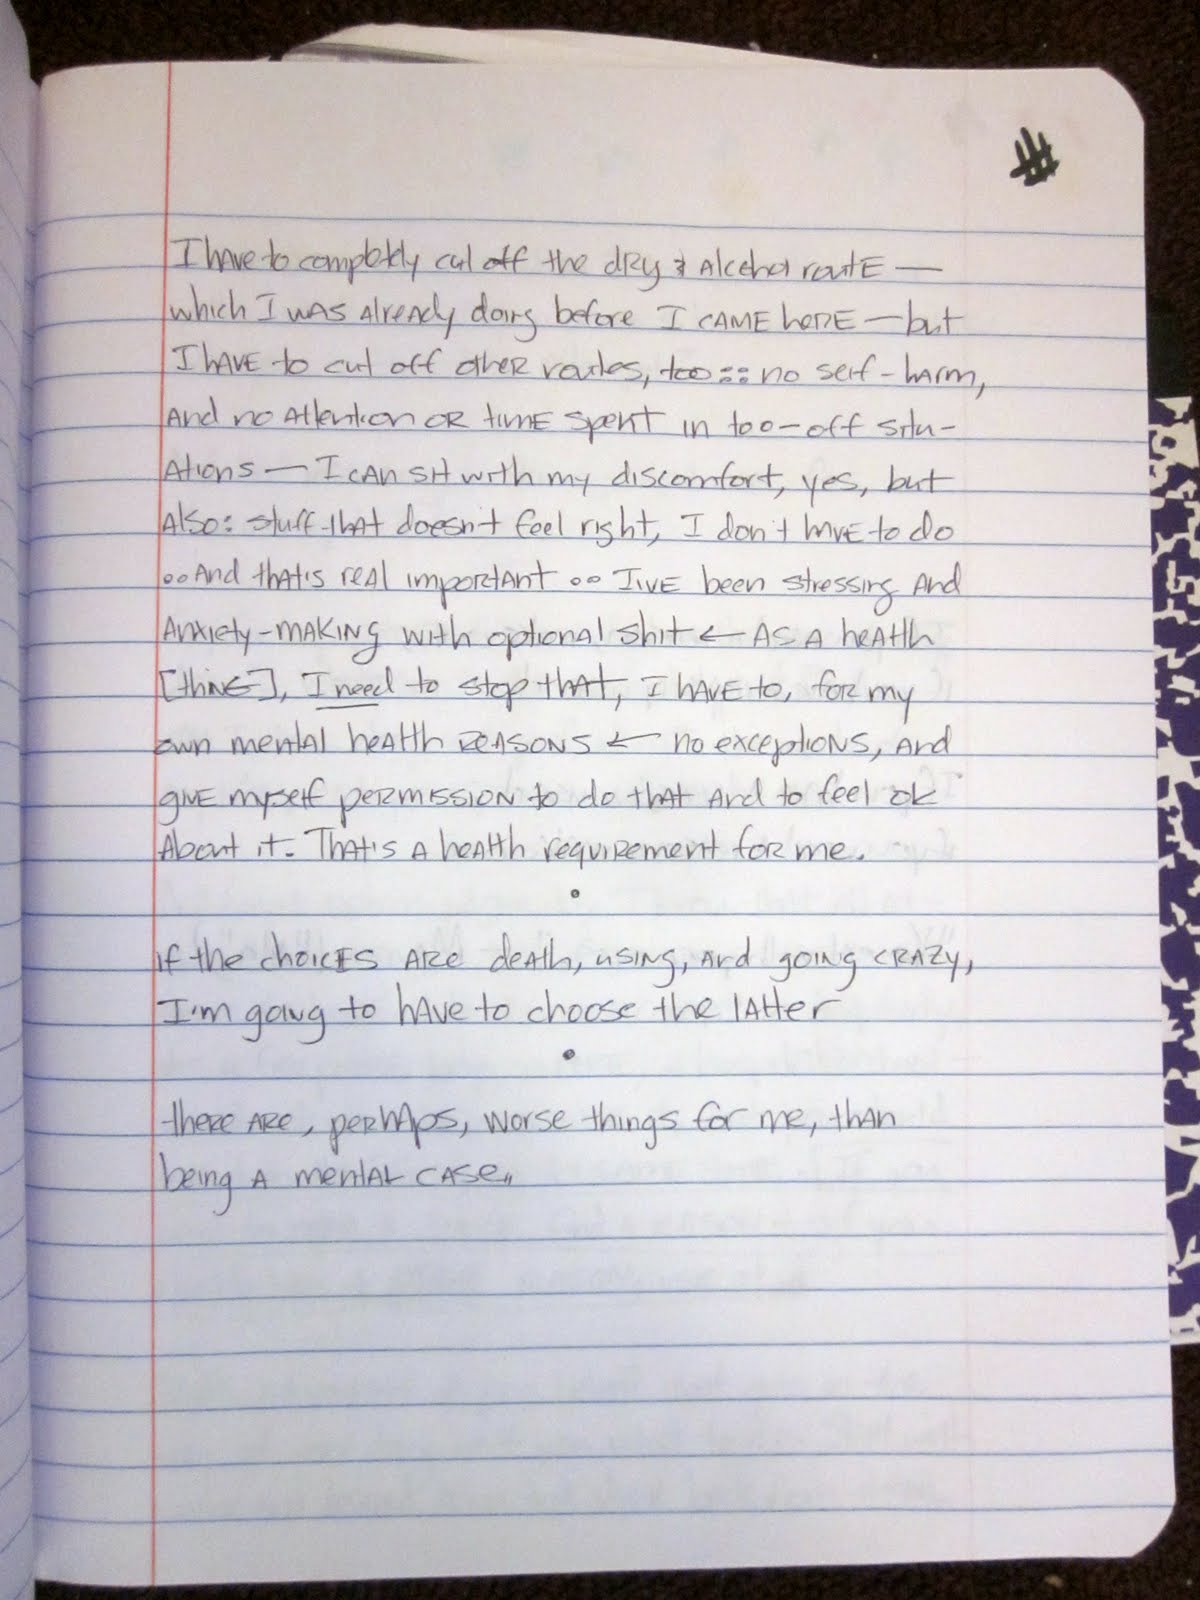 I have to completely cut off the drug & Alcohol route —
which I was Already doing before I came here — but
I have to cut off other routes, too :: no self-harm,
And no Attention or time spent in too-off situ-
Ations — I can sit with my discomfort, yes, but
Also: stuff that doesn't feel right, I don't have to do
..And that's real important .. I've been stressing And
Anxiety-making with optional shit ← As A health
[thing], I need to stop that, I have to, for my
own mental health reasons ← no exceptions, And
give myself permission to do that And to feel ok
About it. That's A health requirement for me.
•
if the choices Are death, using, And going crazy,
I'm going to have to choose the latter
•
there Are, perhaps, worse things for me, than
being A mental case,,